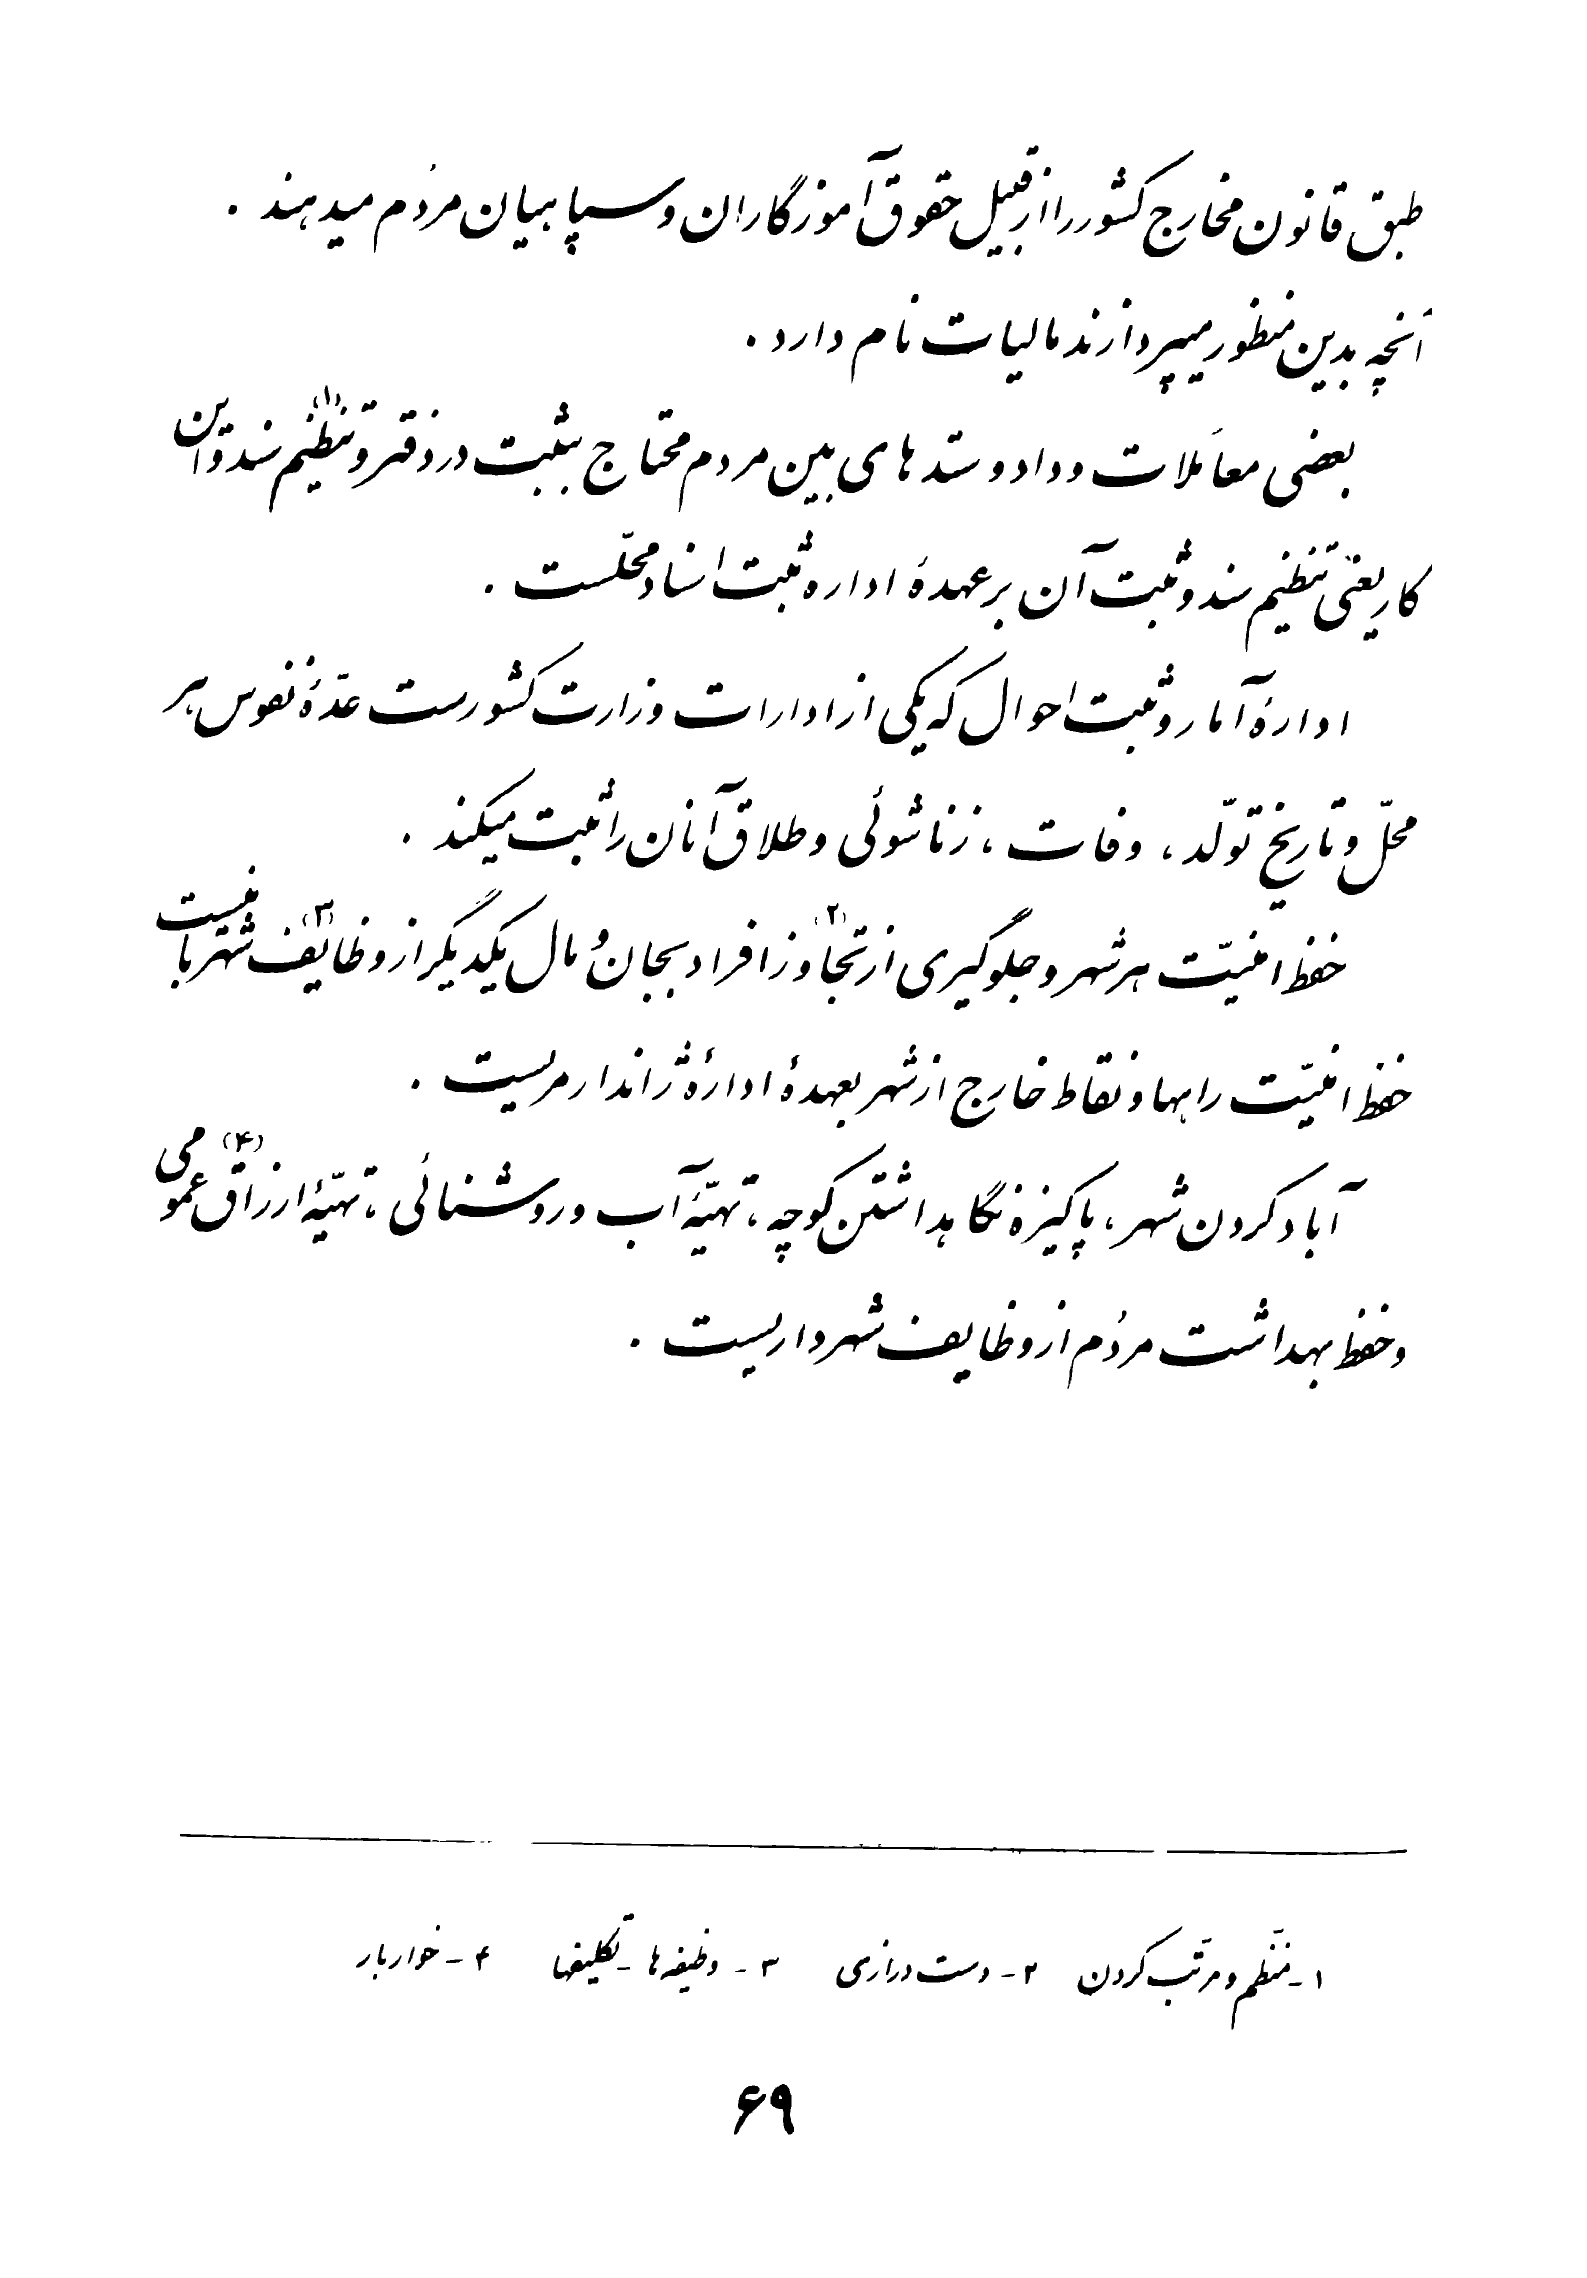 طبق قانون مخارج کشور را از قبیل حقوق آموزگاران و سپاهیان مردُم میدهند .
آنچه بدین منظور میپردازند مالیات نام دارد .
بعضی معامَلات و داد و ستد های بین مردم محتاج بثبت در دفتر و تنظیم (۱) سند و این
کار یعنی تنظیم سند و ثبت آن بر عهدهٔ ادارهٔ ثبت اسناد محلّست .
ادارهٔ آمار و ثبت احوال که یکی از ادارات وزارت کشورست عدّهٔ نفوس هر
محلّ و تاریخ تولّد ، وفات ، زناشوئی و طلاق آنان را ثبت میکند .
حفظ امنیّت هر شهر و جلوگیری از تجاوز (۲) افراد بجان و مال یکدیگر از وظایف (۳) شهربانیست
حفظ امنیّت راهها و نقاط خارج از شهر بعهدهٔ ادارهٔ ژاندارمریست .
آباد کردن شهر ، پاکیزه نگاهداشتن کوچه ، تهیّهٔ آب و روشنائی ، تهیّهٔ ارزاق (۴) عمومی
و حفظ بهداشت مردُم از وظایف شهرداریست .
۱ - منَظّم و مرَتّب کردن ۲ - دست درازی ۳ - وظیفه ها - تکلیفها ۴ - خواربار
۶۹